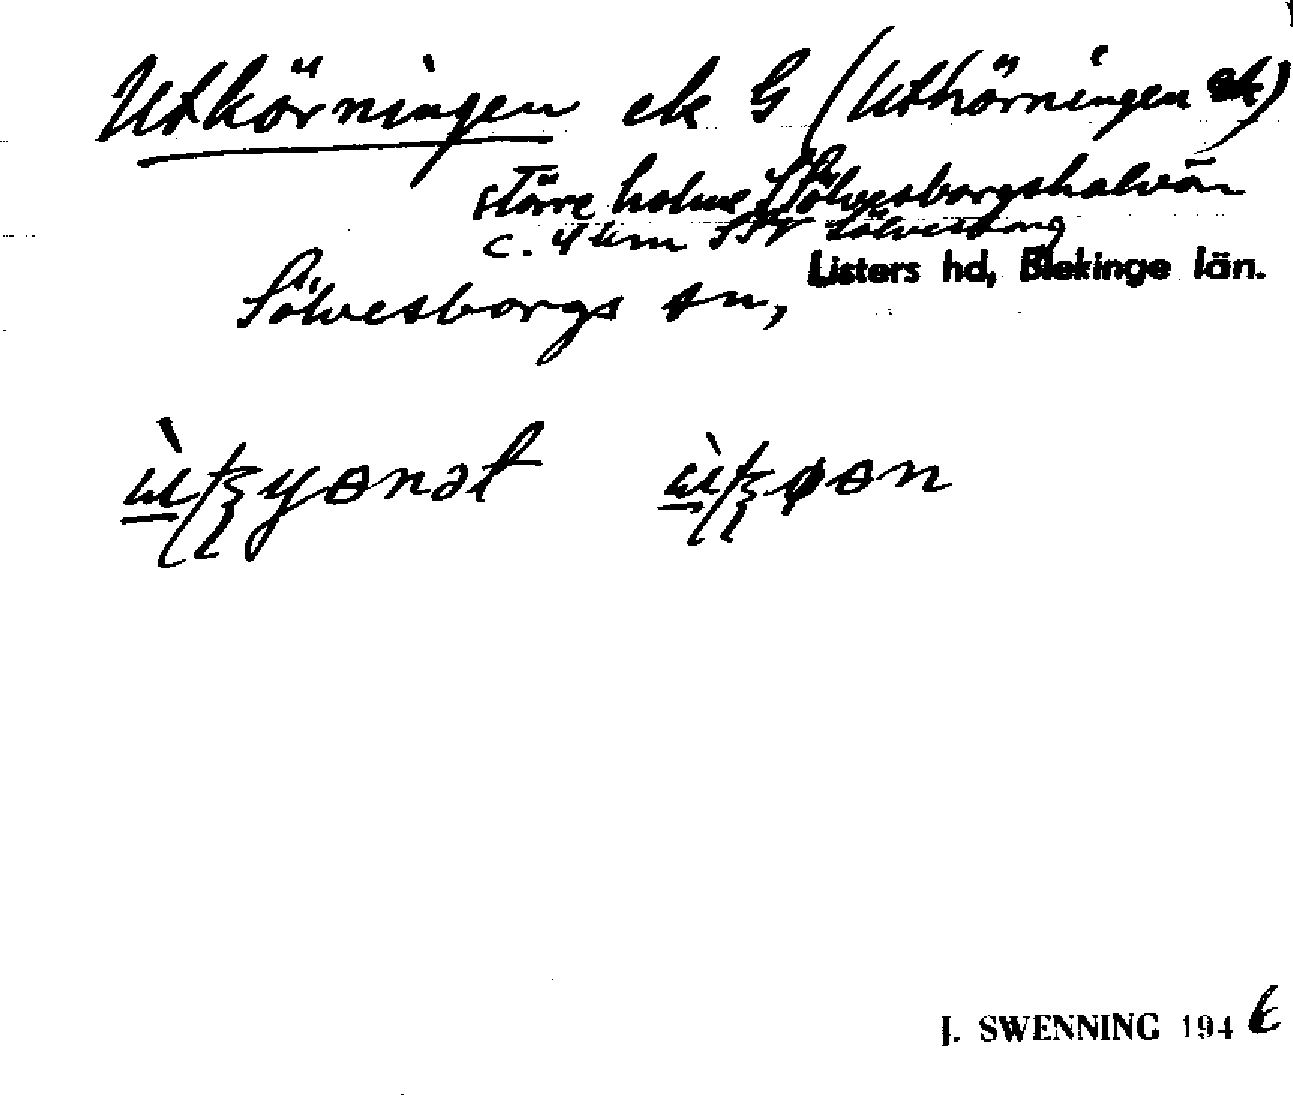 Utkörningen ek G (Utkörningen ek)
större holme Sölvesborgshalvön
c. 4 km SSV Sölvesborg
Listers hd, Blekinge län.
Sölvesborgs sn,
J. SWENNING 1946